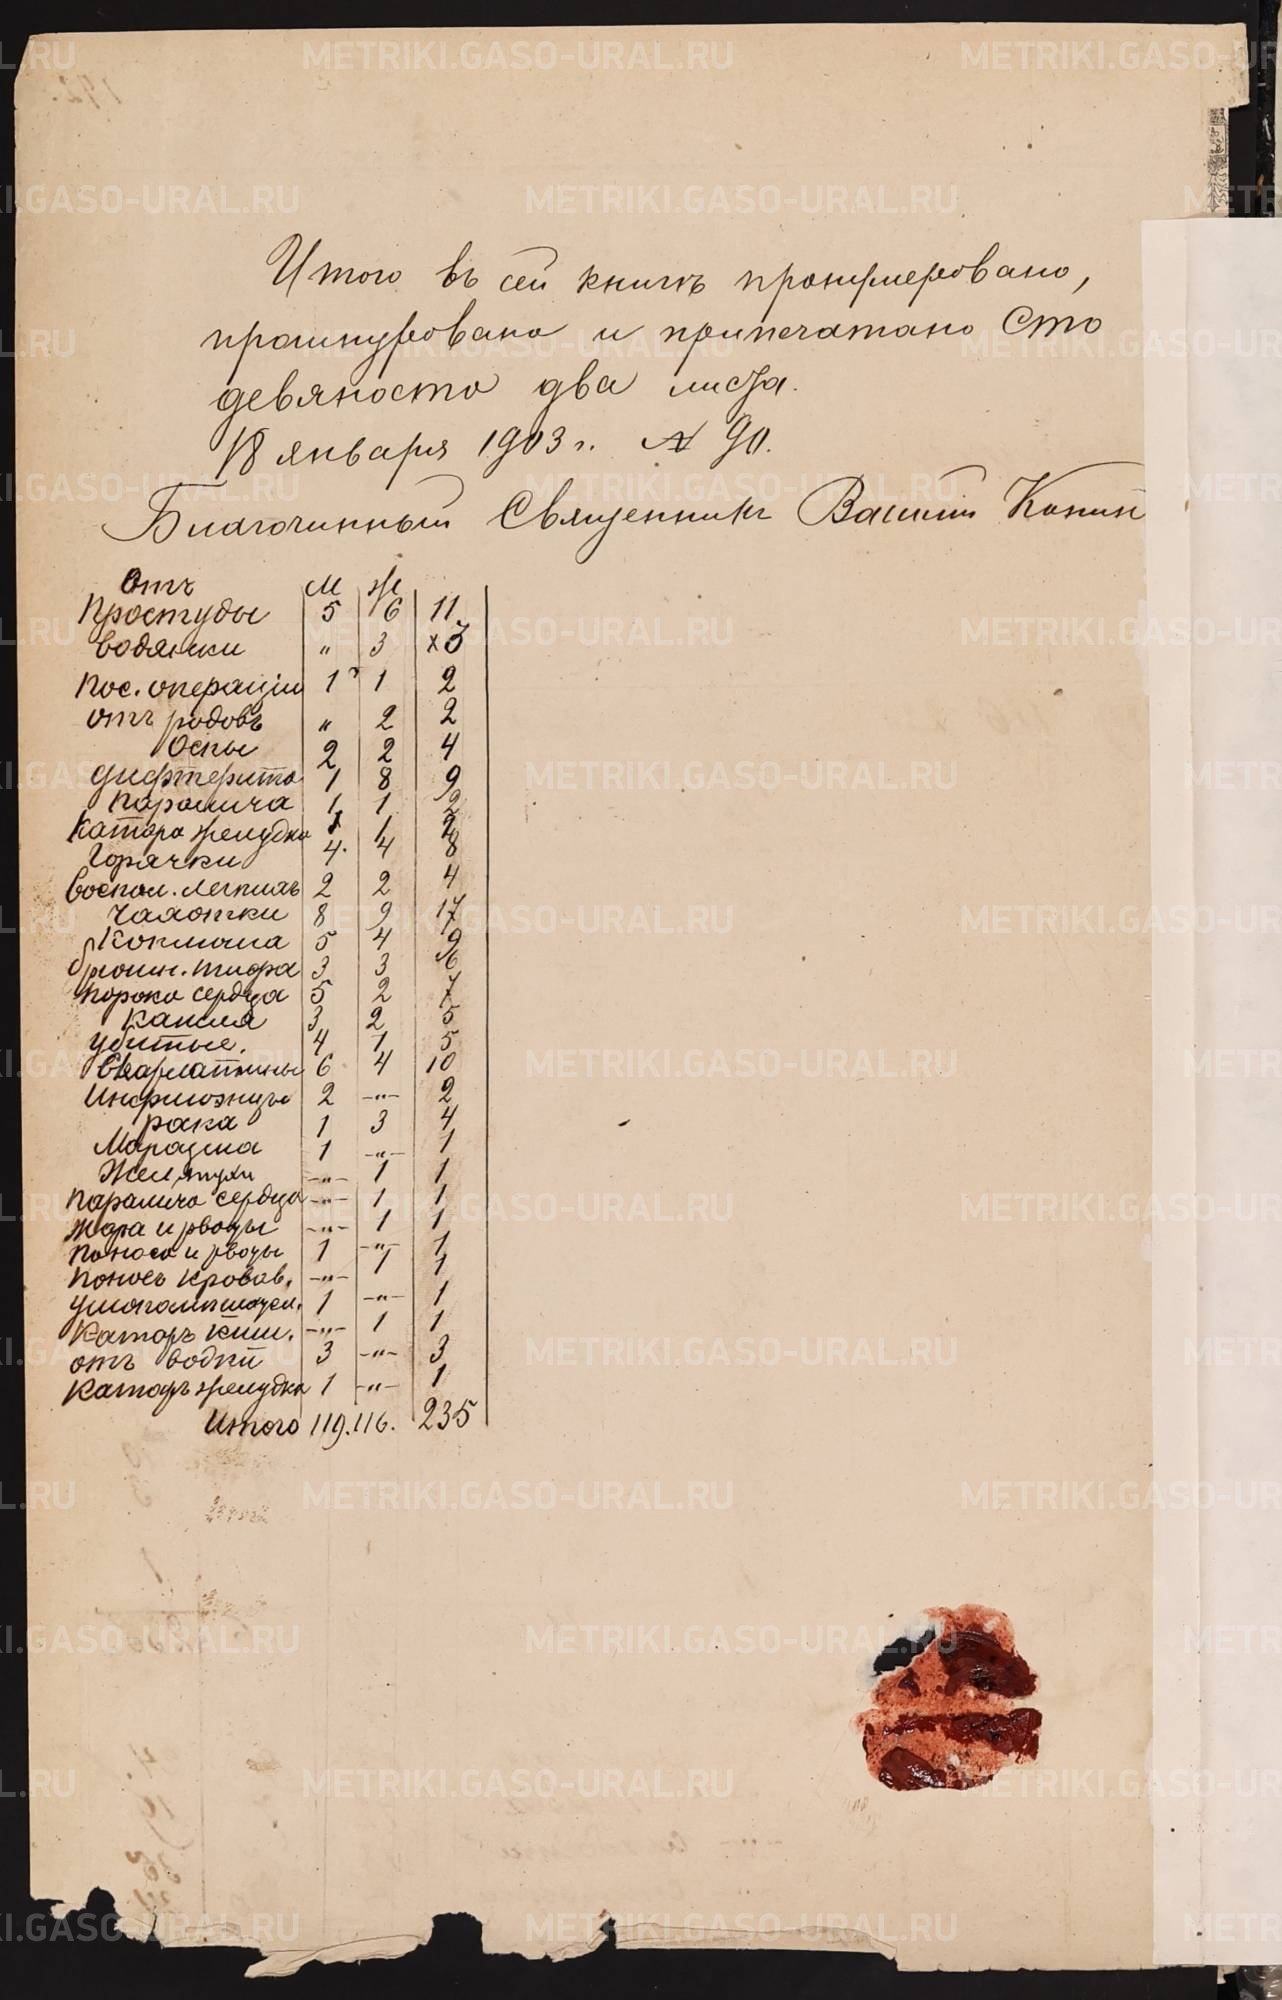 Итого въ сей книгѣ пронумеровано,
прошнуровано и припечатано Сто
девяносто два листа.
18 января 1903 г. № 90.
Благочинный Священникъ Василій
Отъ М Ж
Простуды 5 6 11
водянки " 3 3
пос. операціи 1 1 2
отъ родовъ " 2 2
Оспы 2 2 4
дифтерита 1 8 9
паралича 1 1 2
Катара желудка 1 1 2
Горячки 4 4 8
воспал. легкихъ 2 2 4
Чахотки 8 9 17
Коклюша 5 4 9
брюшн. тифа 3 3 6
порока сердца 5 2 7
Кашля 3 2 5
убитые. 4 1 5
Скарлатины 6 4 10
Инфлюэнцы 2 -"- 2
рака 1 3 4
Маразма 1 -"- 1
Желтухи -"- 1 1
паралича сердца -"- 1 1
жара и рвоты -"- 1 1
поноса и рвоты 1 -"- 1
поносъ кровав. -"- 1 1
1 -"- 1
Катаръ киш. -"- 1 1
отъ водки 3 -"- 3
Катаръ желудка 1 -"- 1
Итого 119. 116. 235
METRIKI.GASO-URAL.RU